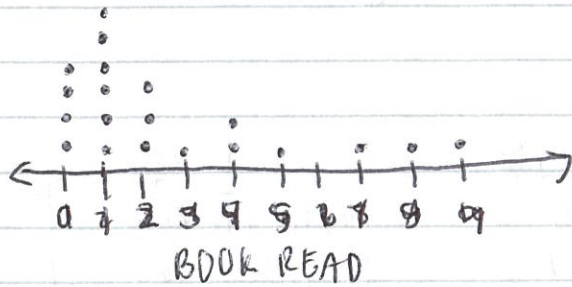 0 1 2 3 4 5 6
BOOK READ